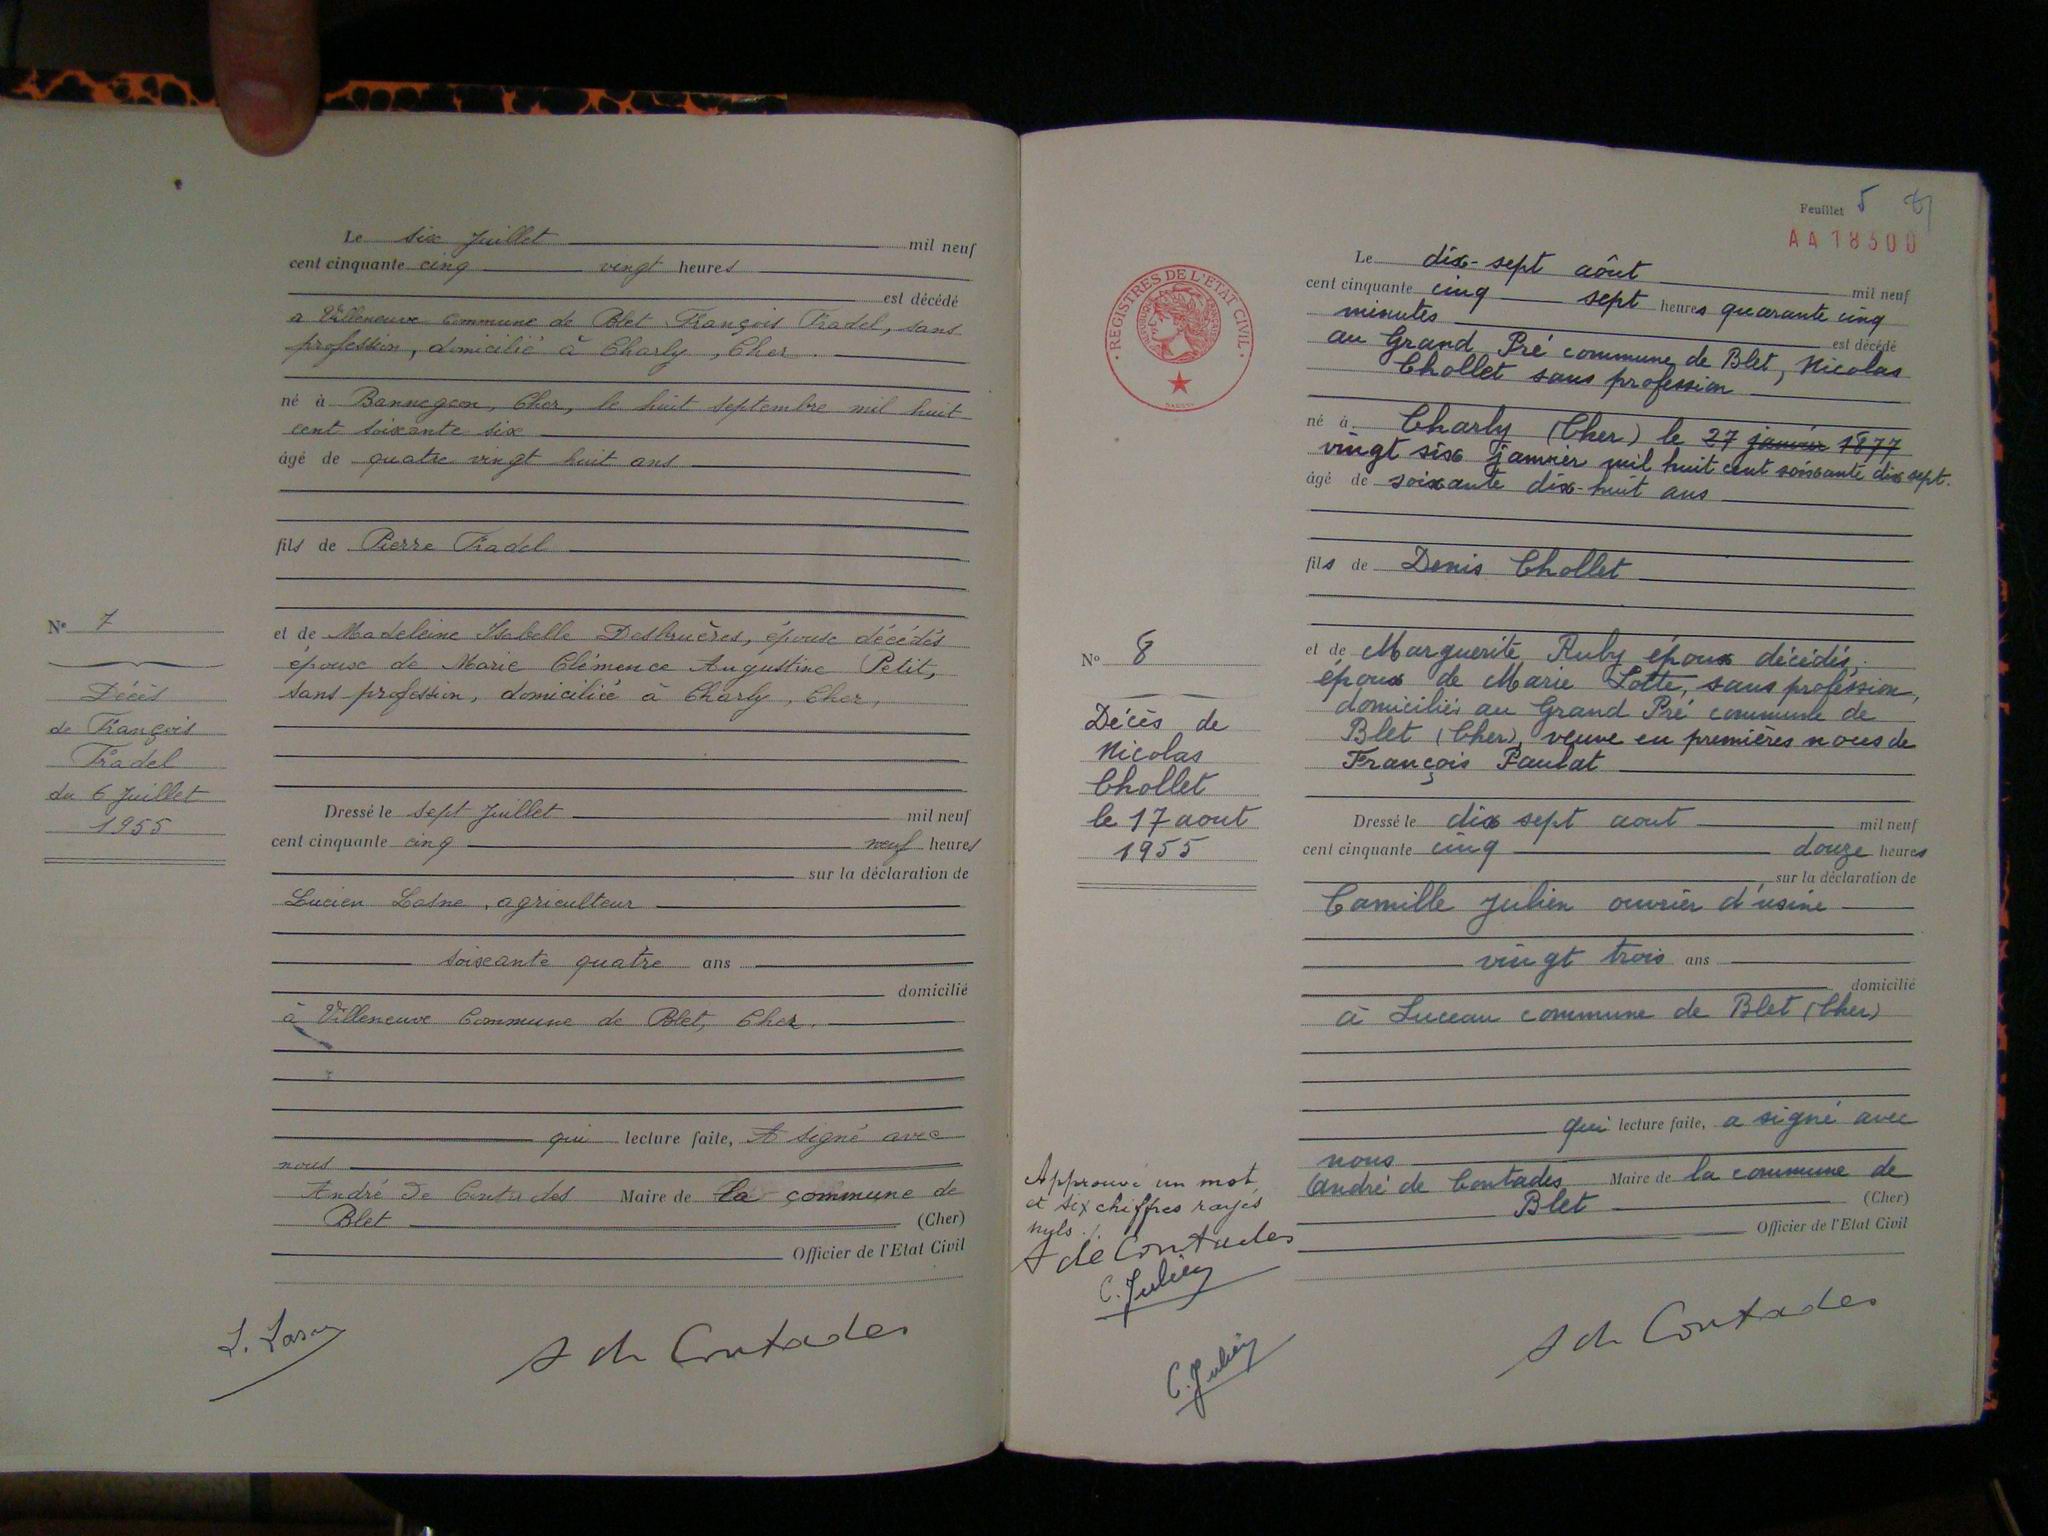 Le six Juillet mil neuf
cent cinquante cinq vingt heures
est décédé
a Villeneuve commune de Blet François Fradel, sans
profession, domicilié à Charly, Cher.
né à Bannegon, Cher, le huit septembre mil huit
cent soixante six
âgé de quatre vingt huit ans
fils de Pierre Fradel
et de Madeleine Isabelle Desbruères, épouse décédés
épouse de Marie Clémence Augustine Petit,
sans profession, domiciliée à Charly, Cher,
N° 7
Décès
de François
Fradel
du 6 Juillet
1955
Dressé le sept Juillet mil neuf
cent cinquante cinq neuf heures
sur la déclaration de
Lucien Lasne, agriculteur
soixante quatre ans
domicilié
à Villeneuve Commune de Blet, Cher.
qui lecture faite, A signé avec
nous
André De Contades Maire de la commune de
Blet (Cher)
Officier de l'Etat Civil
L. Lasne
A de Contades
Feuillet 5
AA 18300
REGISTRES DE L'ETAT CIVIL
Le dix-sept aôut mil neuf
cent cinquante cinq sept heures quarante cinq
minutes est décédé
au Grand Pré commune de Blet, Nicolas
Chollet sans profession
né à Charly (Cher) le 27 janvier 1877
vingt six janvier mil huit cent soixante dix sept.
âgé de soixante dix-huit ans
fils de Denis Chollet
et de Marguerite Ruby époux décédés,
époux de Marie Lotte, sans profession,
domiciliés au Grand Pré commune de
Blet (Cher), veuve en premières noces de
François Paulat
N° 8
Décès de
Nicolas
Chollet
le 17 aout
1955
Dressé le dix sept aout mil neuf
cent cinquante cinq douze heures
sur la déclaration de
Camille Julien ouvrier d'usine
vingt trois ans
domicilié
à Luceau commune de Blet (Cher)
qui lecture faite, a signé avec
nous
André de Contades Maire de la commune de
Blet (Cher)
Officier de l'Etat Civil
Approuvé un mot
et six chiffres rayés
nuls.
A de Contades
C. Julien
C. Julien
A de Contades